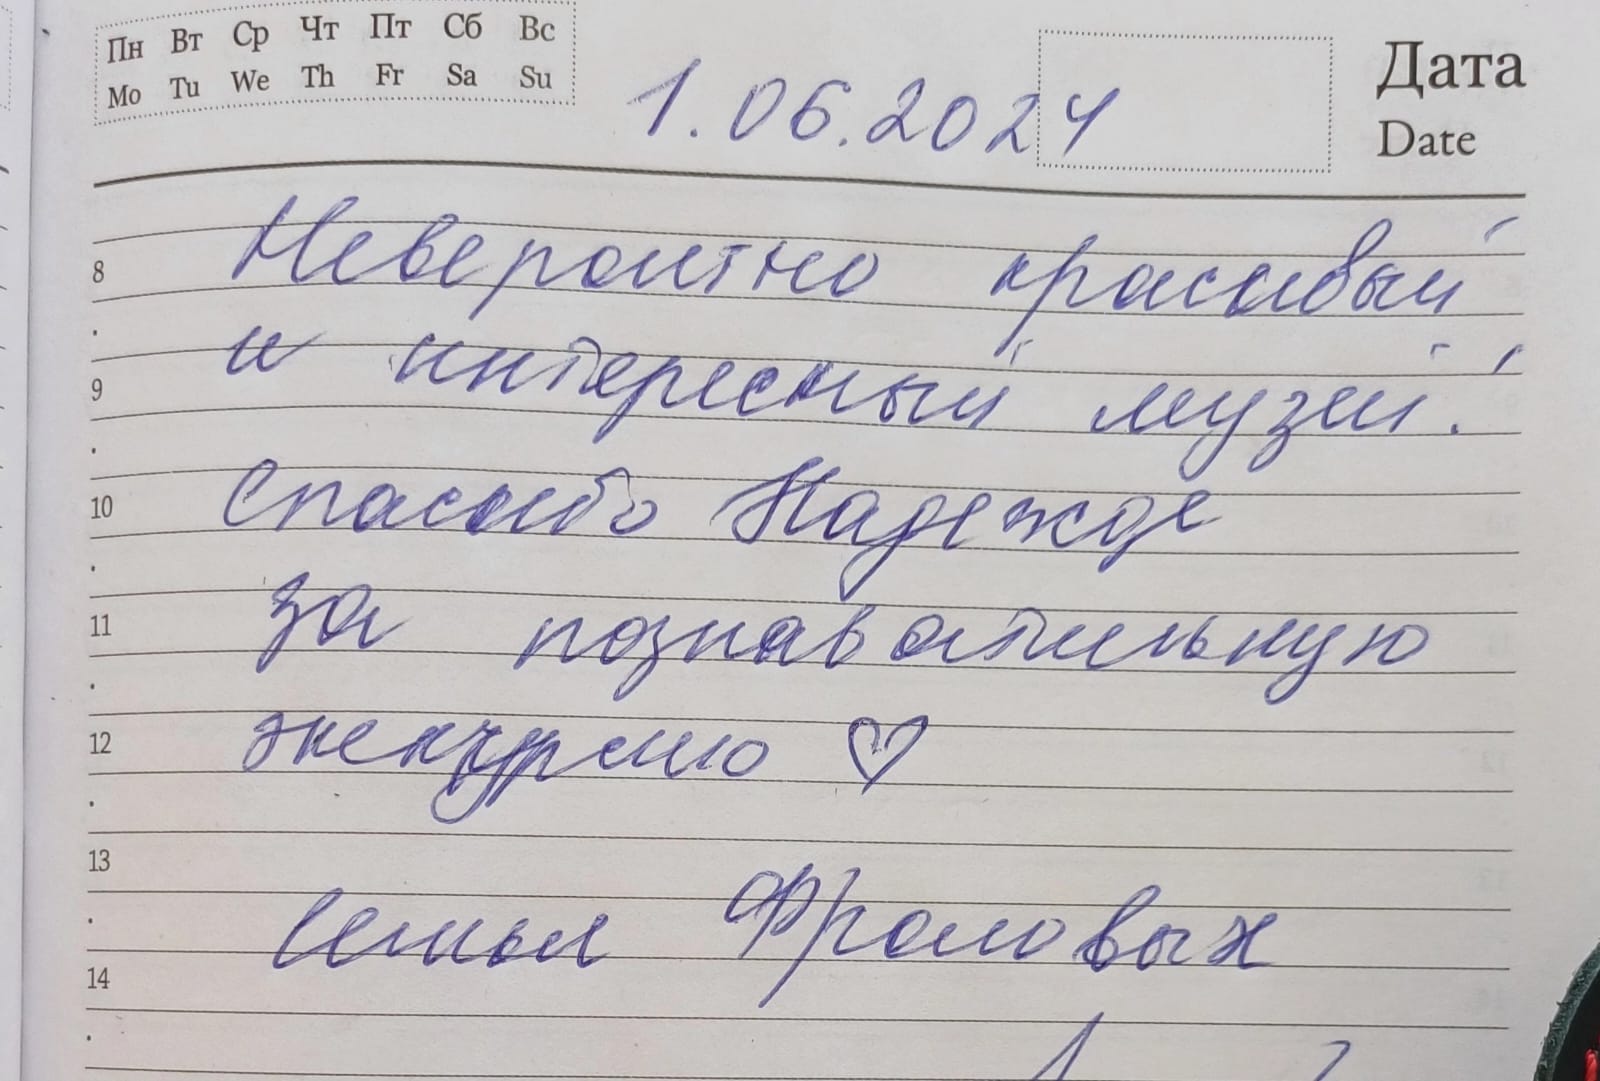 Пн Вт Ср Чт Пт Сб Вс
Mo Tu We Th Fr Sa Su
1.06.2024
Дата
Date
8
Невероятно красивый
9
и интересный музей!
10
Спасибо Надежде
11
за познавательную
12
экскурсию ♡
13
семья Фроловых
14